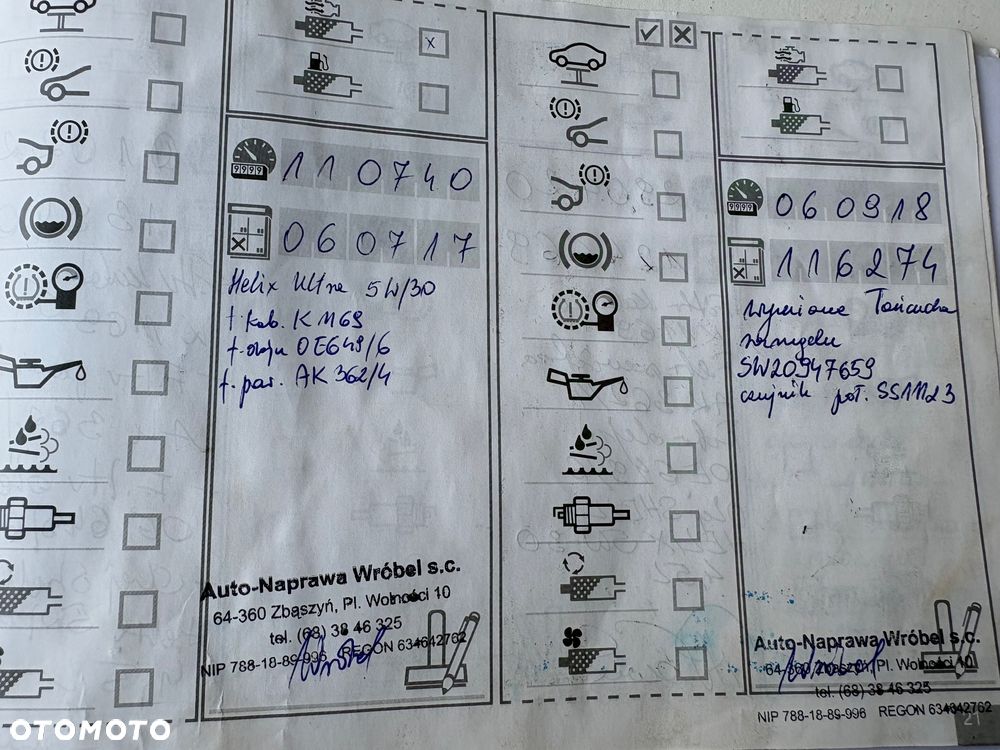 110740
060717
Helix Ultra 5W/30
f. kab. K1169
f. oleju OE649/6
f. pow. AK362/4
Auto-Naprawa Wróbel s.c.
64-360 Zbąszyń, Pl. Wolności 10
tel. (68) 38 46 325
NIP 788-18-89-996 REGON 634642762
Wróbel
060918
116274
wymiana Łańcucha
rozrządu
SW20947659
czujnik poł. SS11123
Auto-Naprawa Wróbel s.c.
64-360 Zbąszyń, Pl. Wolności 10
tel. (68) 38 46 325
NIP 788-18-89-996 REGON 634642762
21
OTOMOTO